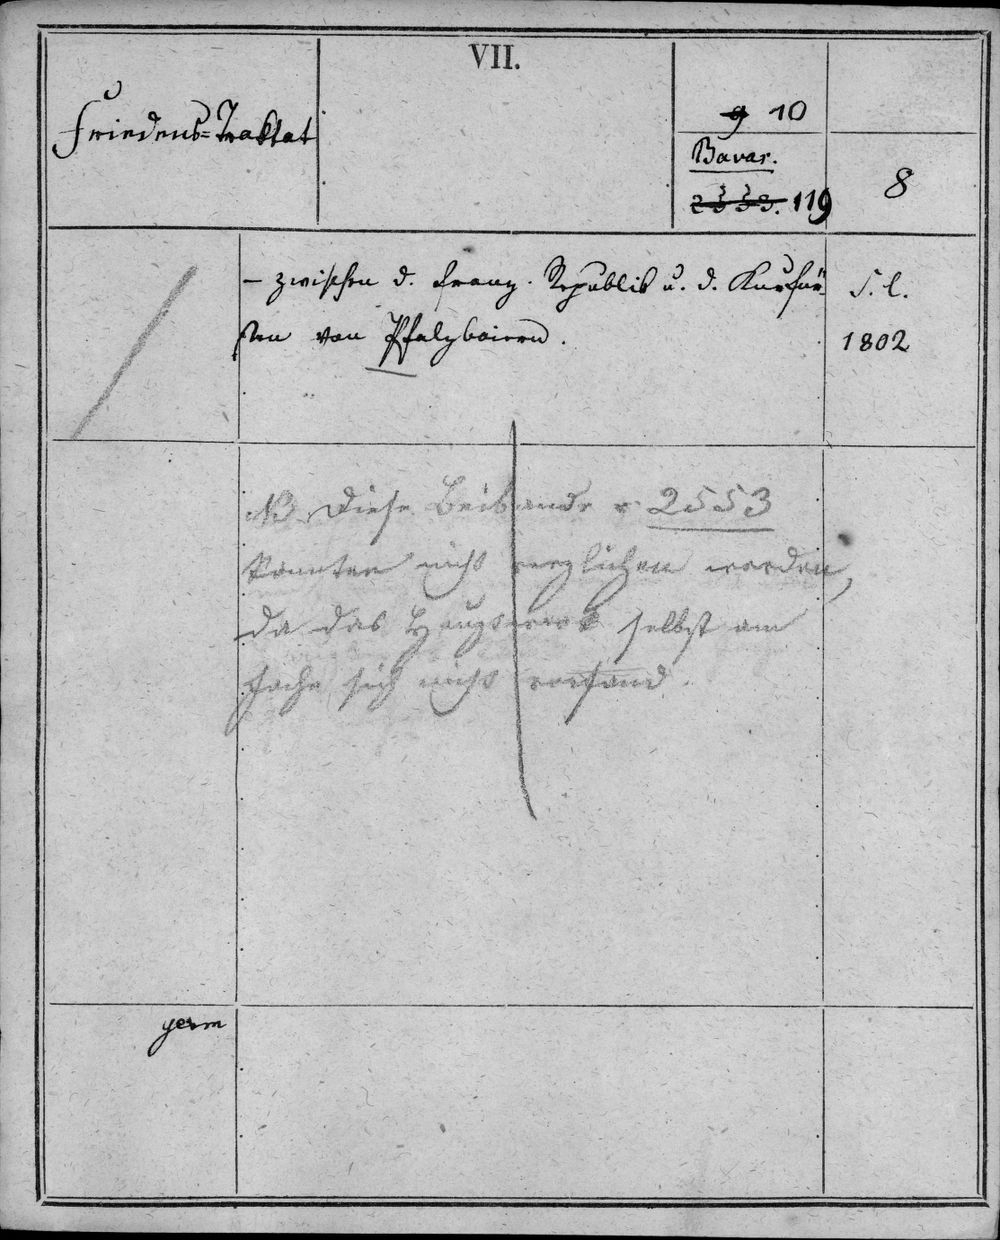 VII.
Friedens=Traktat
9 10
Bavar.
2553. 119
8
– zwischen d. franz. Republik u. d. Kurfür=
sten von Pfalzbaiern.
S. l.
1802
NB. Diese Beibände v. 2553
konnten nicht verglichen werden,
da das Hauptwerk selbst am
Fache sich nicht vorfand.
germ